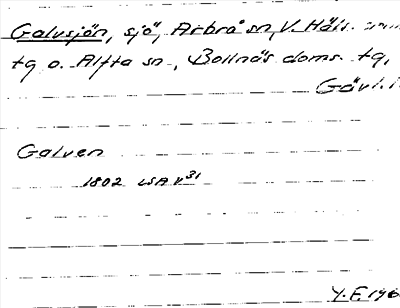 Galvsjön, sjö, Arbrå sn, V. Häls.
tg o. Alfta sn, Bollnäs doms. tg,
Gävl.
Galven
1802 LSA V31
Y.F. 196